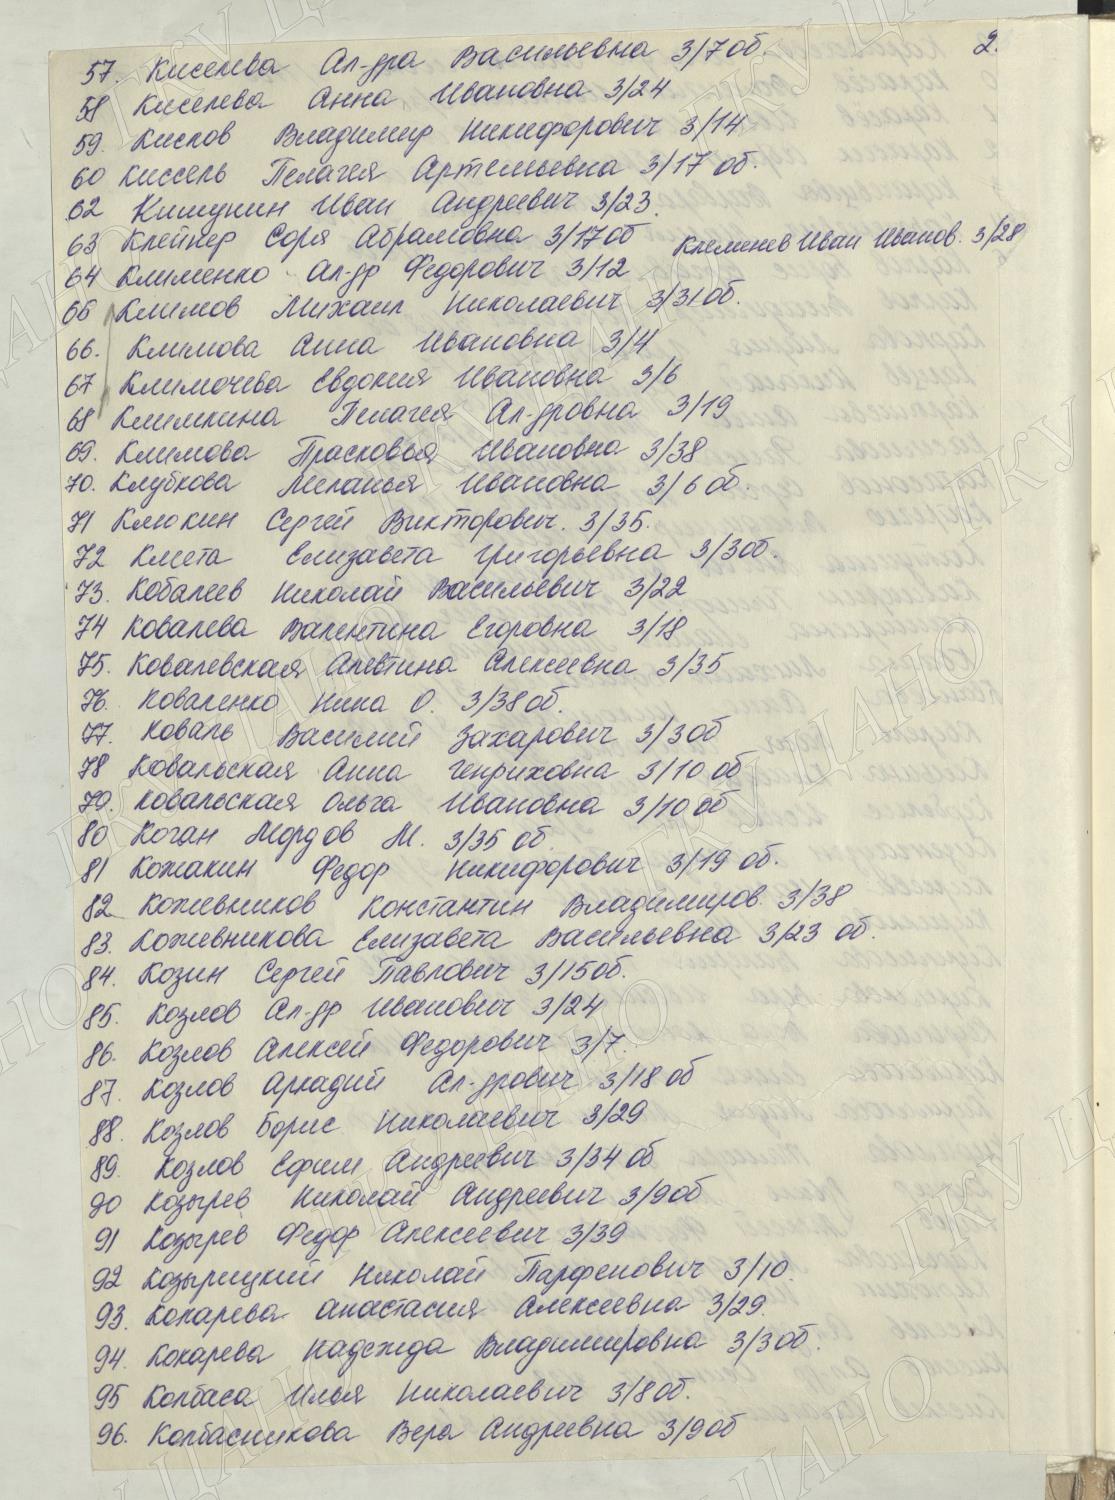 2.
57. Киселева Ал-дра Васильевна 3/7 об.
58 Киселева Анна Ивановна 3/24
59. Кислов Владимир Никифорович 3/14
60 Киссель Пелагея Артемьевна 3/17 об.
62 Кишунин Иван Андреевич 3/23.
63 Клейнер Соря Абрамовна 3/17 об Клеменев Иван Иванов. 3/28
64 Клименко Ал-др Федорович 3/12
66 Климов Михаил Николаевич 3/31 об.
66. Климова Анна Ивановна 3/4
67 Климочева Евдокия Ивановна 3/6
68 Климкина Пелагея Ал-дровна 3/19
69. Климова Прасковья Ивановна 3/38
70. Клубкова Меланья Ивановна 3/6 об.
71 Клюкин Сергей Викторович. 3/35.
72 Кмета Елизавета Григорьевна 3/3 об.
73. Кобалеев Николай Васильевич 3/22
74 Ковалева Валентина Егоровна 3/18
75. Ковалевская Алевтина Алексеевна 3/35
76. Коваленко Нина О. 3/38 об.
77. Коваль Василий Захарович 3/3 об
78 Ковальская Анна Генриховна 3/10 об
79. Ковальская Ольга Ивановна 3/10 об
80 Коган Мордов М. 3/35 об.
81 Кожакин Федор Никифорович 3/19 об.
82 Кожевников Константин Владимиров. 3/38
83. Кожевникова Елизавета Васильевна 3/23 об.
84. Козин Сергей Павлович 3/15 об.
85. Козлов Ал-др Иванович 3/24
86. Козлов Алексей Федорович 3/7.
87. Козлов Аркадий Ал-дрович 3/18 об
88. Козлов Борис Николаевич 3/29
89. Козлов Ефим Андреевич 3/34 об
90 Козырев Николай Андреевич 3/9 об
91 Козырев Федор Алексеевич 3/39
92 Козырицкий Николай Парфенович 3/10.
93. Кокарева Анастасия Алексеевна 3/29.
94. Кокарева Надежда Владимировна 3/3 об.
95 Колбаса Илья Николаевич 3/8 об.
96. Колбасникова Вера Андреевна 3/9 об
ГКУ ЦАНО